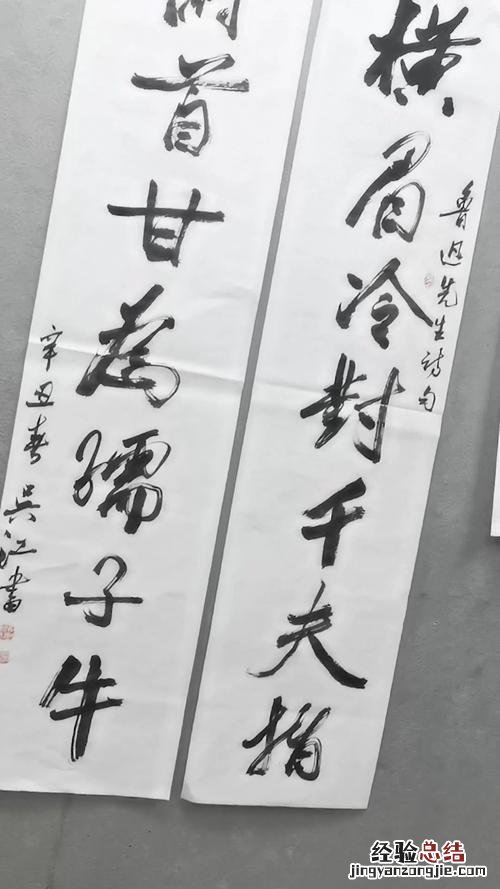 横眉冷對千夫指
魯迅先生詩句
首甘為孺子牛
辛丑春 吴江書
经验总结
jingyanzongjie.com